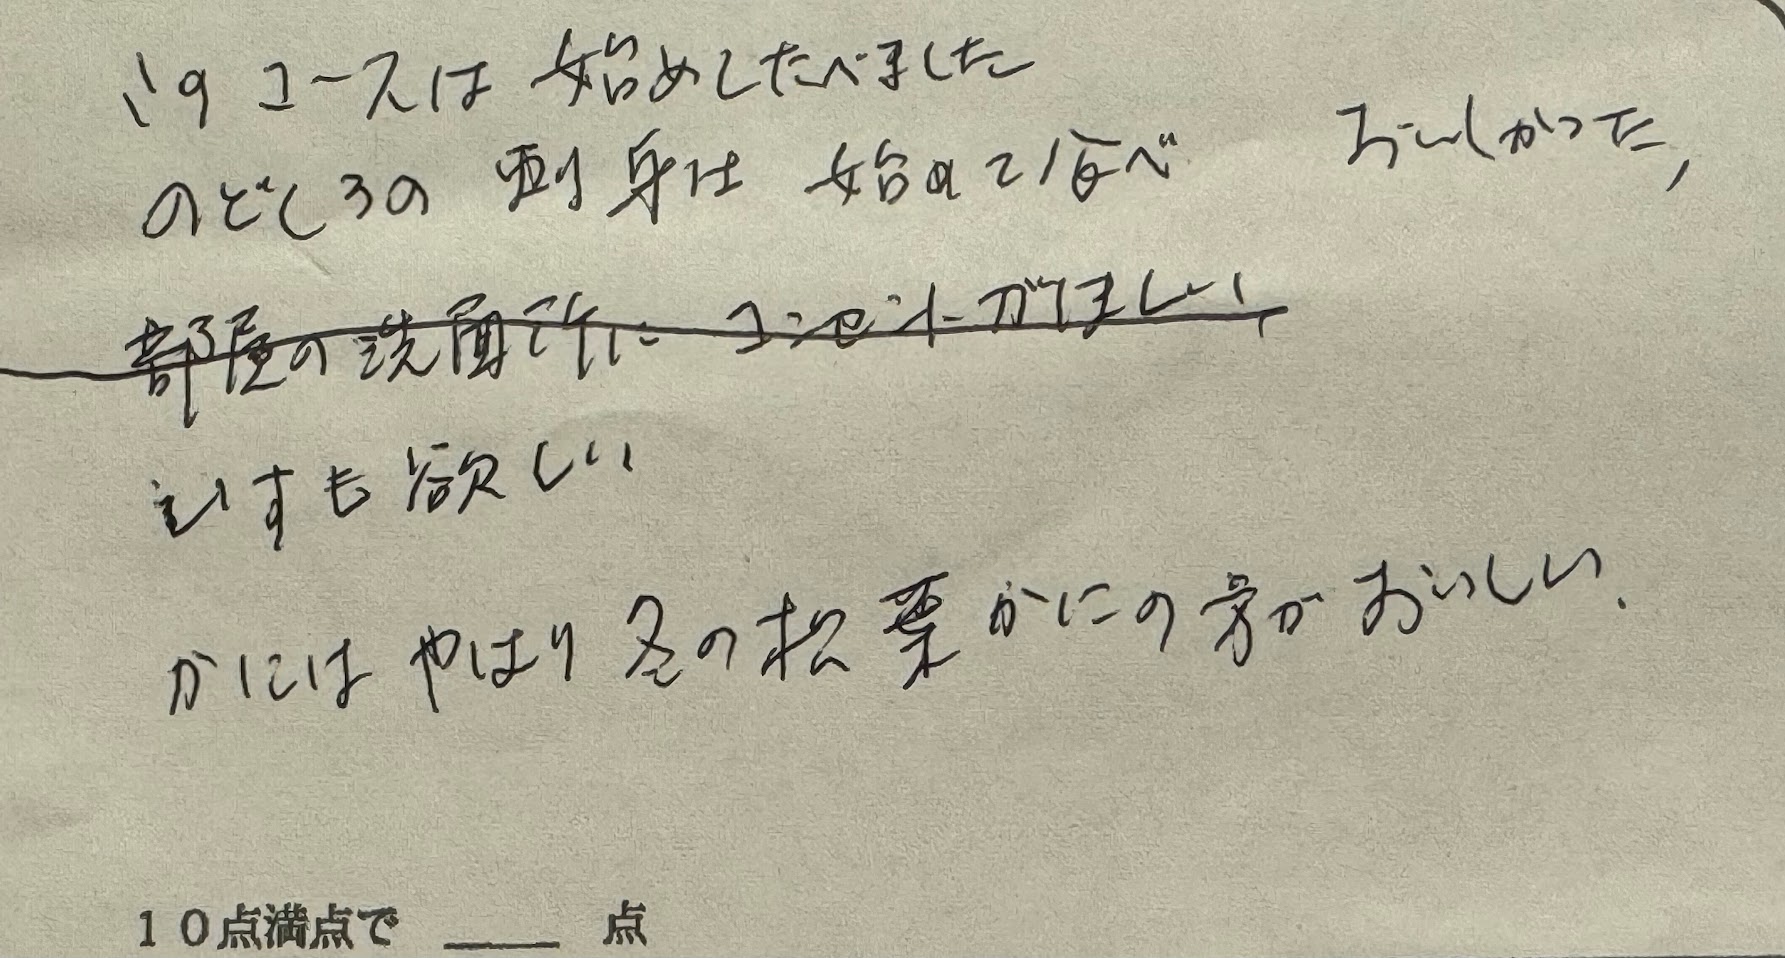 コースは始めしたべました
のどくろの刺身は始めて食べ おいしかった,
部屋の洗面所にコンセントがほしい
いすも欲しい
かにはやはり冬の松葉かにの方がおいしい.
10点満点で ____ 点